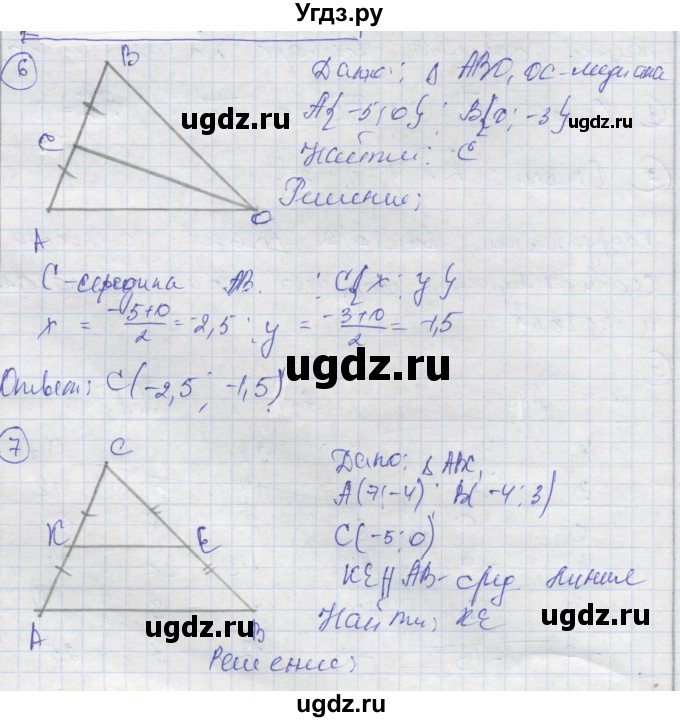 Угдз.ру
6
B
C
A
O
Дано: Δ ABO, OC-медиана
A{-5; 0}; B{0; -3}
ugdz.ru
ugdz.ru
Найти: C
Решение;
ugdz.ru
C-середина AB. : C{x; y}
x = -5+0/2 = -2,5; y = -3+0/2 = -1,5
ugdz.ru
Ответ: C(-2,5; -1,5)
7
C
K
E
A
B
Дано: Δ ABC,
A(7; -4); B(-4; 3)
C(-5; 0)
ugdz.ru
KE || AB - сред линия
Найти; KE
ugdz.ru
ugdz.ru
Решение;
ugdz.ru
ugdz.ru